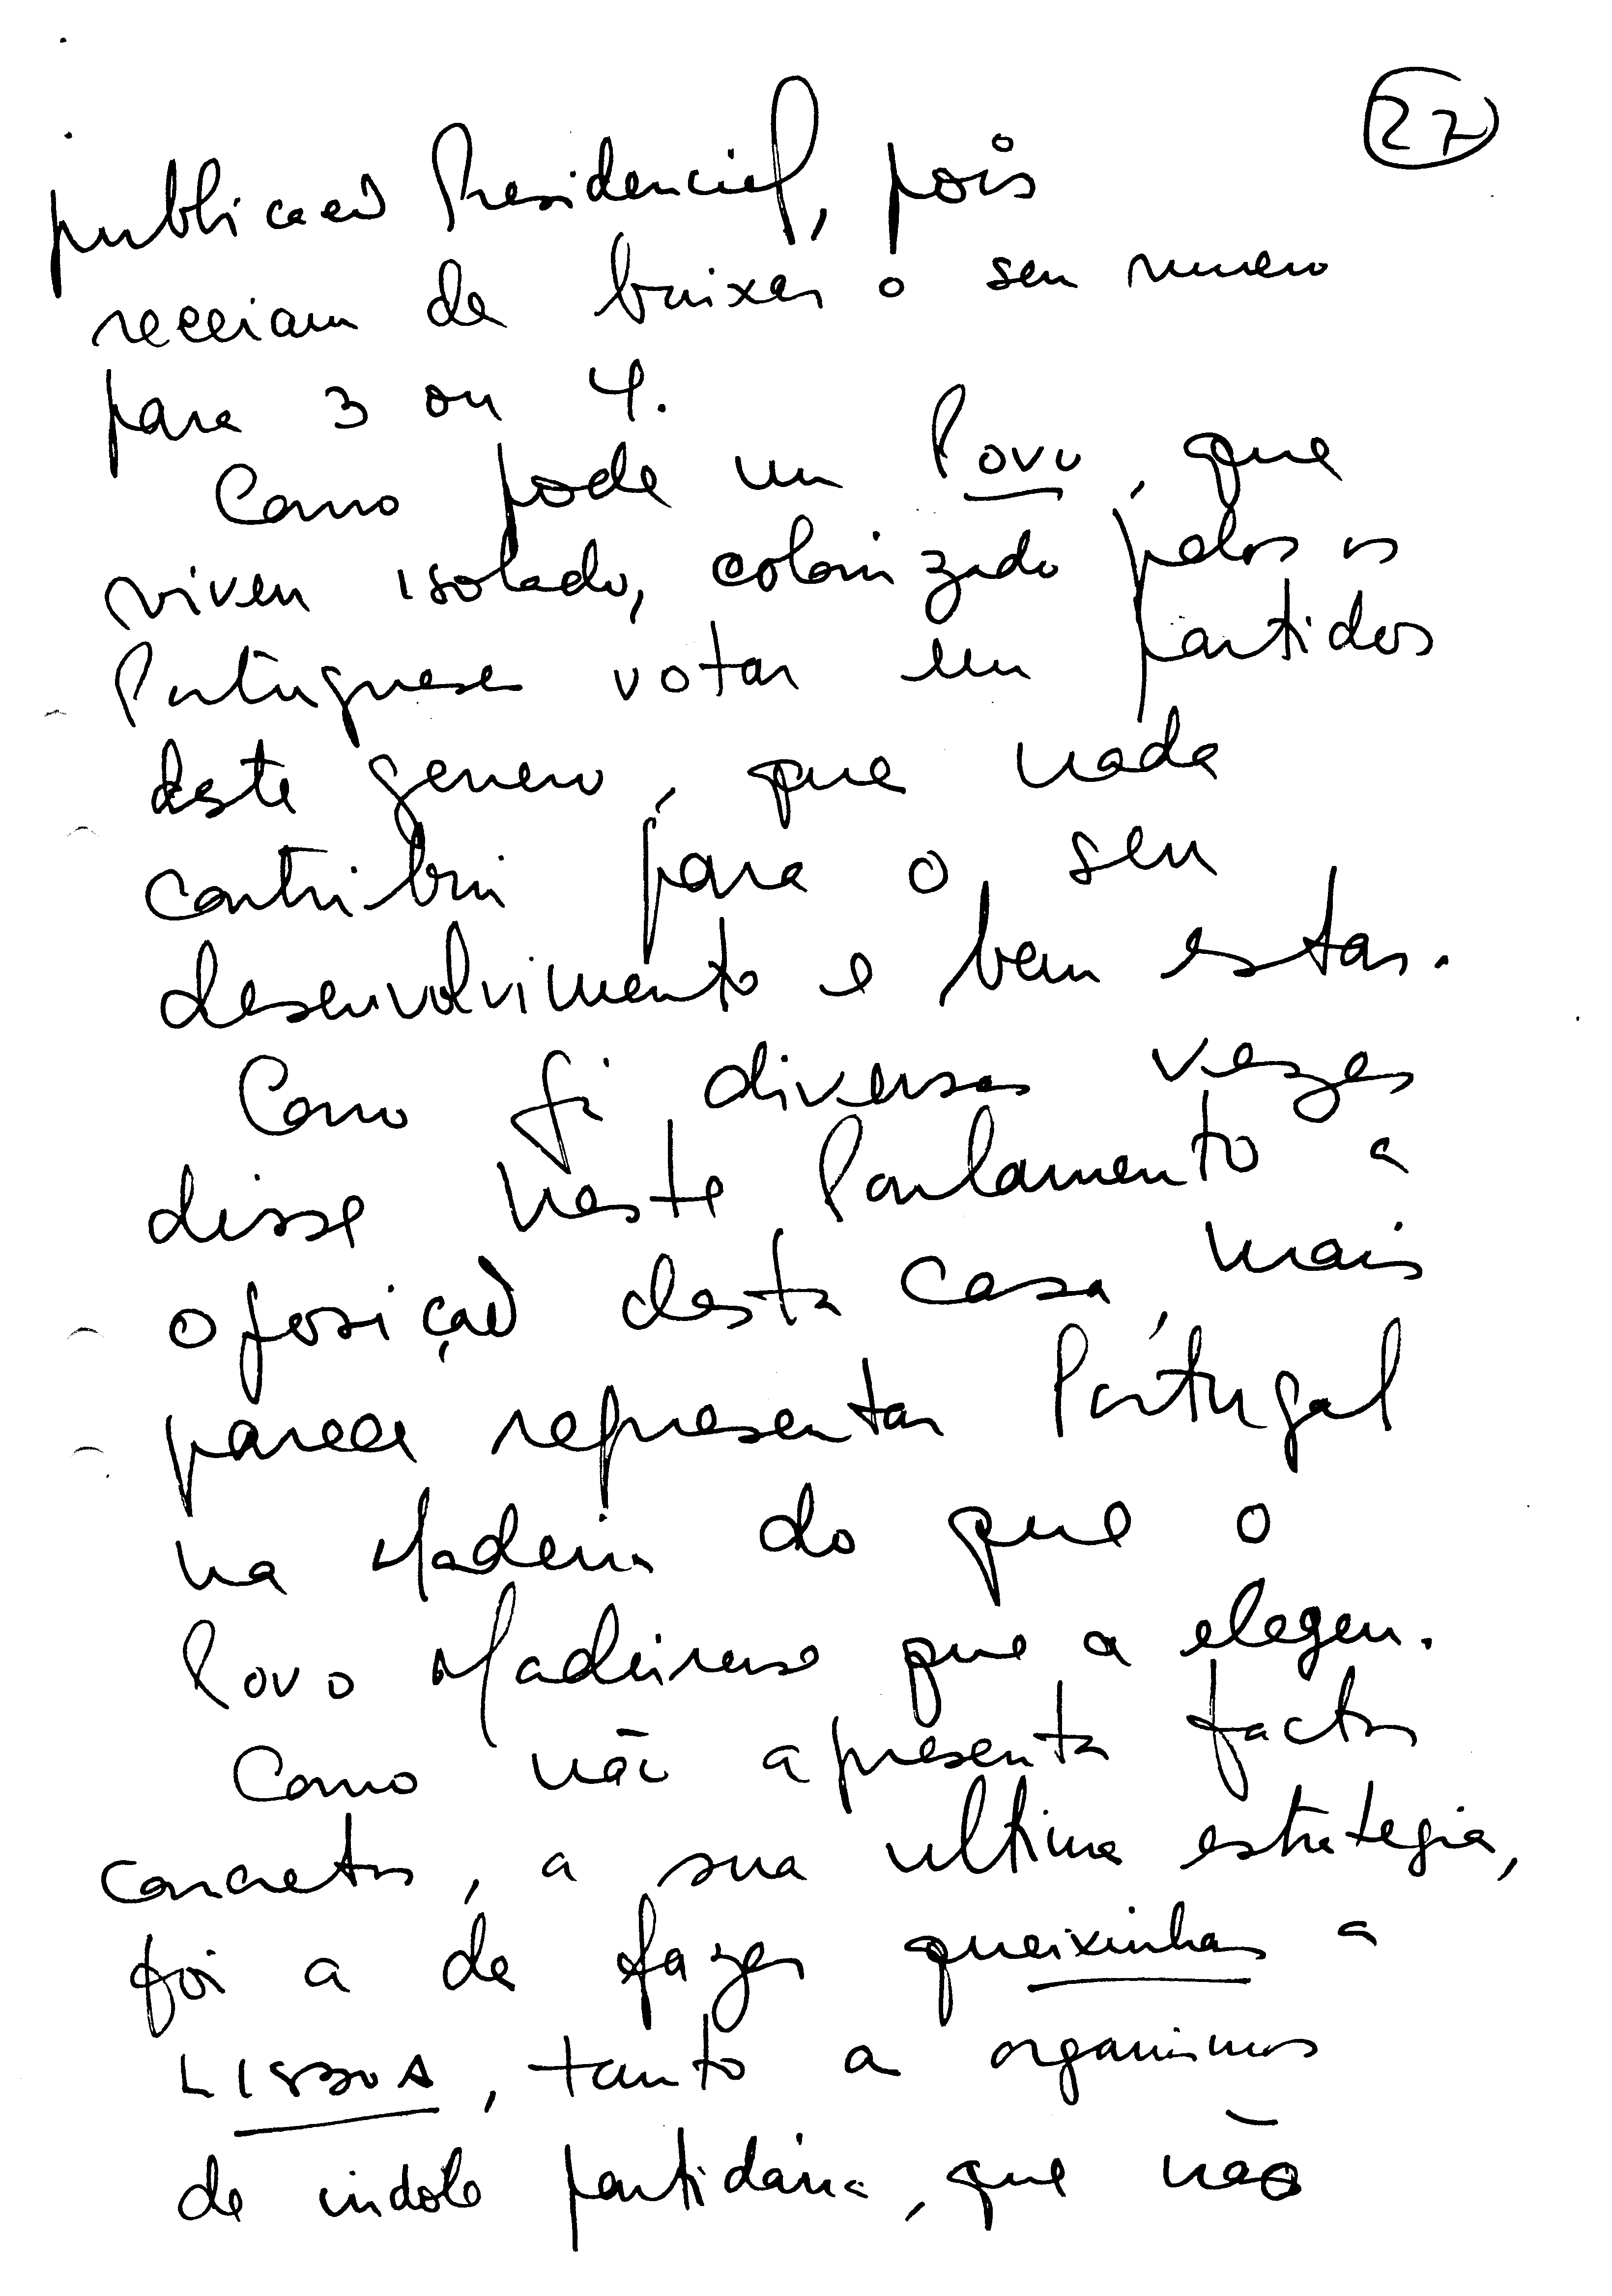 27
publicaçaõ Presidencial, pois
receiam de baixar o seu numero
para 3 ou 4.
Como pode um Povo, que
viveu isolado, colonizado pelos os
Portugueses votar em partidos
deste genero, que nada
contribui para o seu
desenvolvimento e bem estar.
Como já diversas vezes
disse neste Parlamento a
oposiçaõ desta casa, mais
parece representar Portugal
na Madeira do que o
Povo Madeirense que a elegeu.
Como não apresenta factos
concretos, a sua ultima estrategia,
foi a de fazer queixinhas a
LISBOA, tanto a organismos
de indole partidária, que não